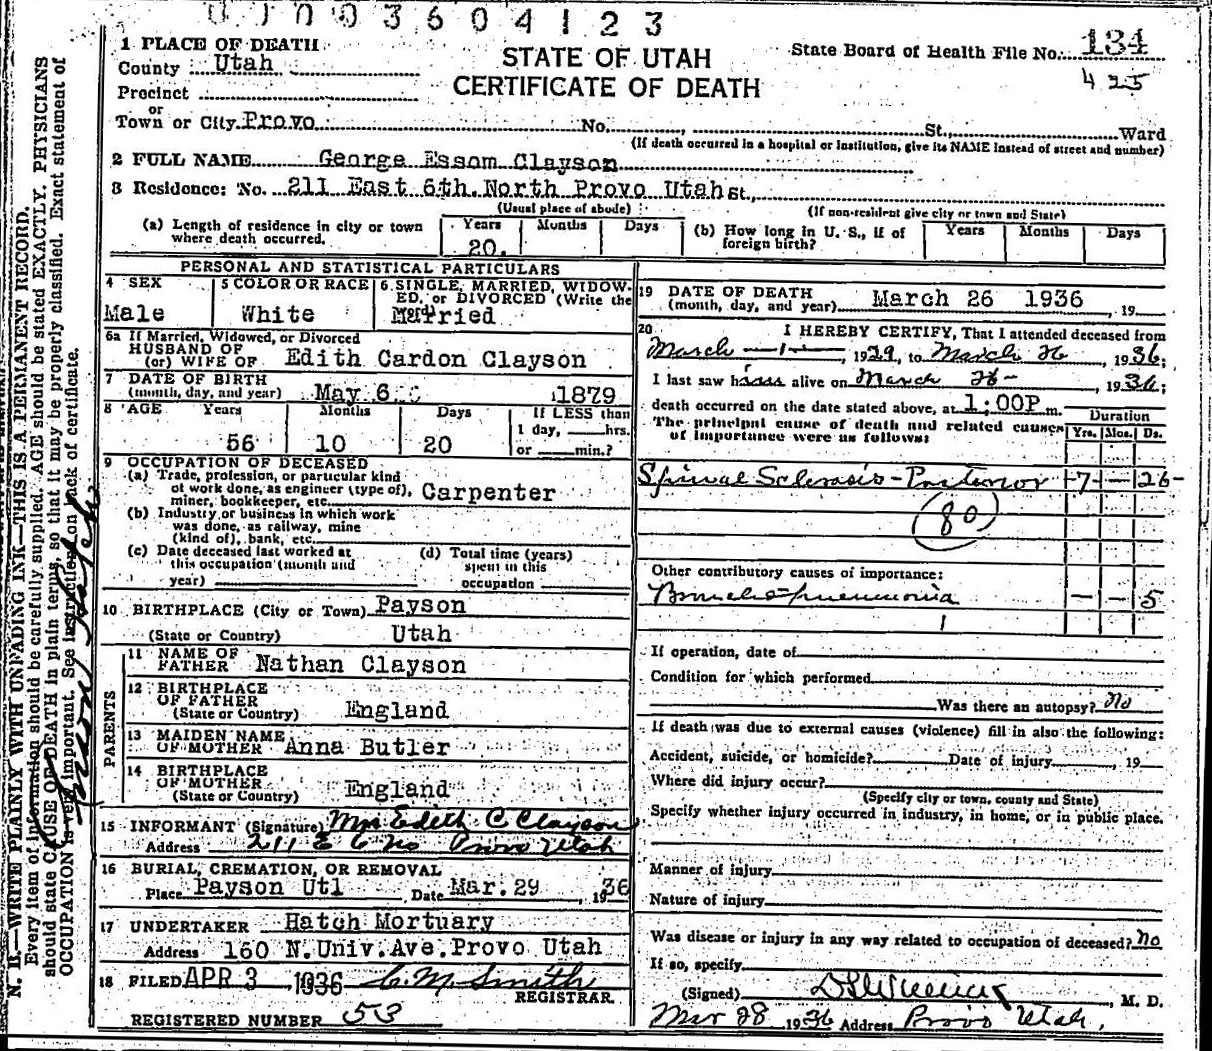 0 1 0 0 3 6 0 4 1 2 3
1 PLACE OF DEATH
County Utah
Precinct
or
Town or City Provo No. , St., Ward
STATE OF UTAH
CERTIFICATE OF DEATH
State Board of Health File No. 134
425
(If death occurred in a hospital or institution, give its NAME instead of street and number)
2 FULL NAME George Essom Clayson
3 Residence: No. 211 East 6th. North Provo Utah St.,
(Usual place of abode)
(If non-resident give city or town and State)
(a) Length of residence in city or town where death occurred.
Years Months Days
20.
(b) How long in U. S., if of foreign birth?
Years Months Days
PERSONAL AND STATISTICAL PARTICULARS
4 SEX
Male
5 COLOR OR RACE
White
6 SINGLE, MARRIED, WIDOWED, or DIVORCED (Write the word)
Married
6a If Married, Widowed, or Divorced
HUSBAND OF
(or) WIFE OF Edith Cardon Clayson
7 DATE OF BIRTH
(month, day, and year) May 6 1879
8 AGE Years Months Days
56 10 20
If LESS than
1 day, hrs.
or min.?
9 OCCUPATION OF DECEASED
(a) Trade, profession, or particular kind
of work done, as engineer (type of),
miner, bookkeeper, etc. Carpenter
(b) Industry or business in which work
was done, as railway, mine
(kind of), bank, etc.
(c) Date deceased last worked at
this occupation (month and
year)
(d) Total time (years)
spent in this
occupation
10 BIRTHPLACE (City or Town) Payson
(State or Country) Utah
PARENTS
11 NAME OF
FATHER Nathan Clayson
12 BIRTHPLACE
OF FATHER
(State or Country) England
13 MAIDEN NAME
OF MOTHER Anna Butler
14 BIRTHPLACE
OF MOTHER
(State or Country) England
15 INFORMANT (Signature) Mrs Edith C Clayson
Address 211 E 6 No Provo Utah
16 BURIAL, CREMATION, OR REMOVAL
Place Payson Utl Date Mar. 29 , 1936
17 UNDERTAKER Hatch Mortuary
Address 160 N. Univ. Ave. Provo Utah
18 FILED APR 3 , 1936 C. M. Smith
REGISTRAR.
REGISTERED NUMBER 53
19 DATE OF DEATH
(month, day, and year) March 26 1936 , 19
20 I HEREBY CERTIFY, That I attended deceased from
March -1- , 1929, to March 26 , 1936;
I last saw him alive on March 26- , 1936;
death occurred on the date stated above, at 1;00P m.
The principal cause of death and related causes
of importance were as follows:
Duration
Yrs. Mos. Ds.
Spinal Sclerosis - Posterior -7- - 26-
(80)
Other contributory causes of importance:
Broncho-pneumonia - - 5
1
If operation, date of
Condition for which performed
Was there an autopsy? No
If death was due to external causes (violence) fill in also the following:
Accident, suicide, or homicide? Date of injury , 19
Where did injury occur?
(Specify city or town, county and State)
Specify whether injury occurred in industry, in home, or in public place.
Manner of injury
Nature of injury
Was disease or injury in any way related to occupation of deceased? No
If so, specify
(Signed) , M. D.
Mar 28 1936 Address Provo Utah.
N. B.—WRITE PLAINLY WITH UNFADING INK—THIS IS A PERMANENT RECORD.
Every item of information should be carefully supplied. AGE should be stated EXACTLY. PHYSICIANS
should state CAUSE OF DEATH in plain terms, so that it may be properly classified. Exact statement of
OCCUPATION is very important. See instructions on back of certificate.